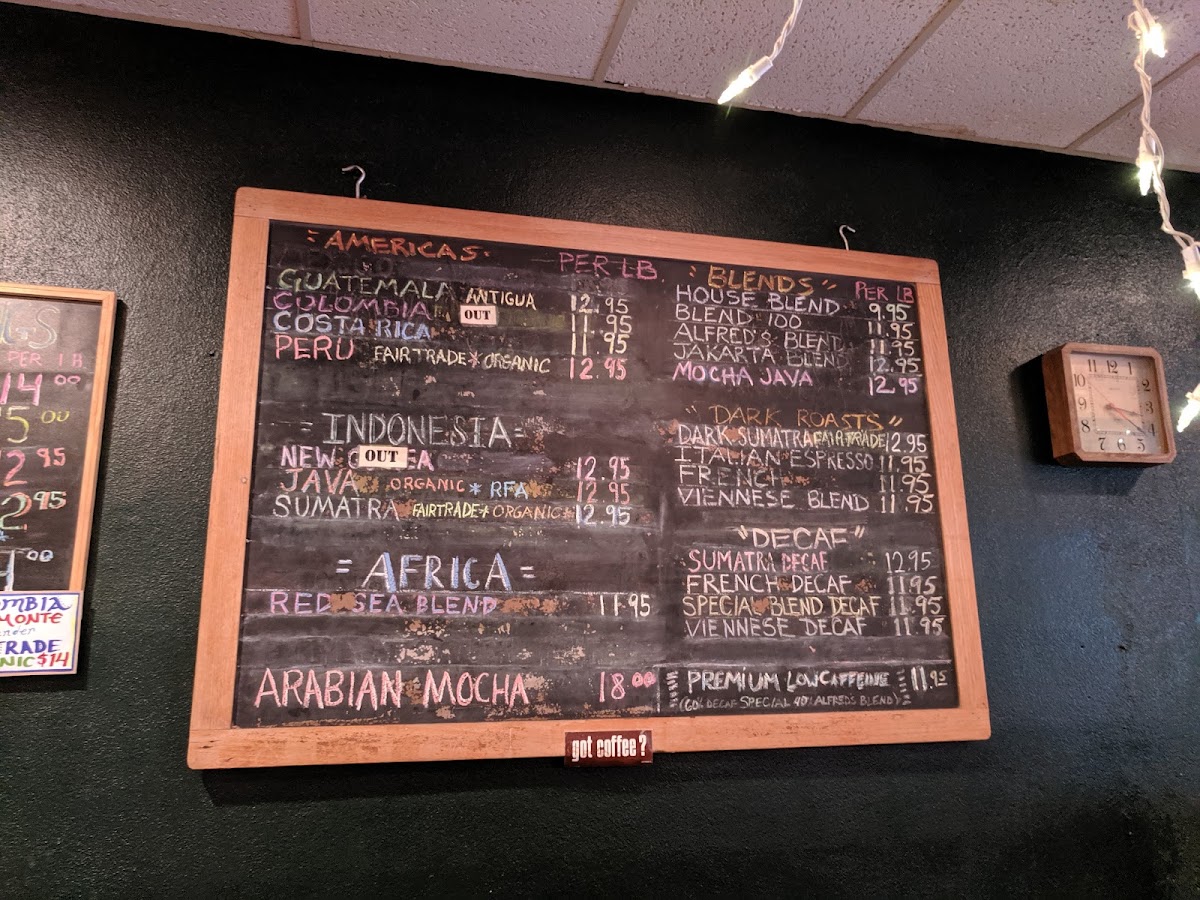 GS
PER LB
14 00
5 00
2 95
2 95
00
OMBIA
MONTE
TRADE
NIC $14
= AMERICAS =
PER LB
GUATEMALA ANTIGUA 12.95
COLOMBIA OUT 11.95
COSTA RICA 11.95
PERU FAIRTRADE * ORGANIC 12.95
= INDONESIA =
NEW G OUT EA 12.95
JAVA ORGANIC * RFA 12.95
SUMATRA FAIRTRADE * ORGANIC 12.95
= AFRICA =
RED SEA BLEND 11.95
ARABIAN MOCHA 18 00
" BLENDS "
PER LB
HOUSE BLEND 9.95
BLEND 100 11.95
ALFRED'S BLEND 11.95
JAKARTA BLEND 12.95
MOCHA JAVA 12.95
" DARK ROASTS "
DARK SUMATRA FAIRTRADE 12.95
ITALIAN ESPRESSO 11.95
FRENCH 11.95
VIENNESE BLEND 11.95
"DECAF"
SUMATRA DECAF 12.95
FRENCH DECAF 11.95
SPECIAL BLEND DECAF 11.95
VIENNESE DECAF 11.95
PREMIUM LOWCAFFEINE 11.95
(60% DECAF SPECIAL 40% ALFREDS BLEND)
got coffee?
11 12 1
10 2
9 3
8 4
7 6 5